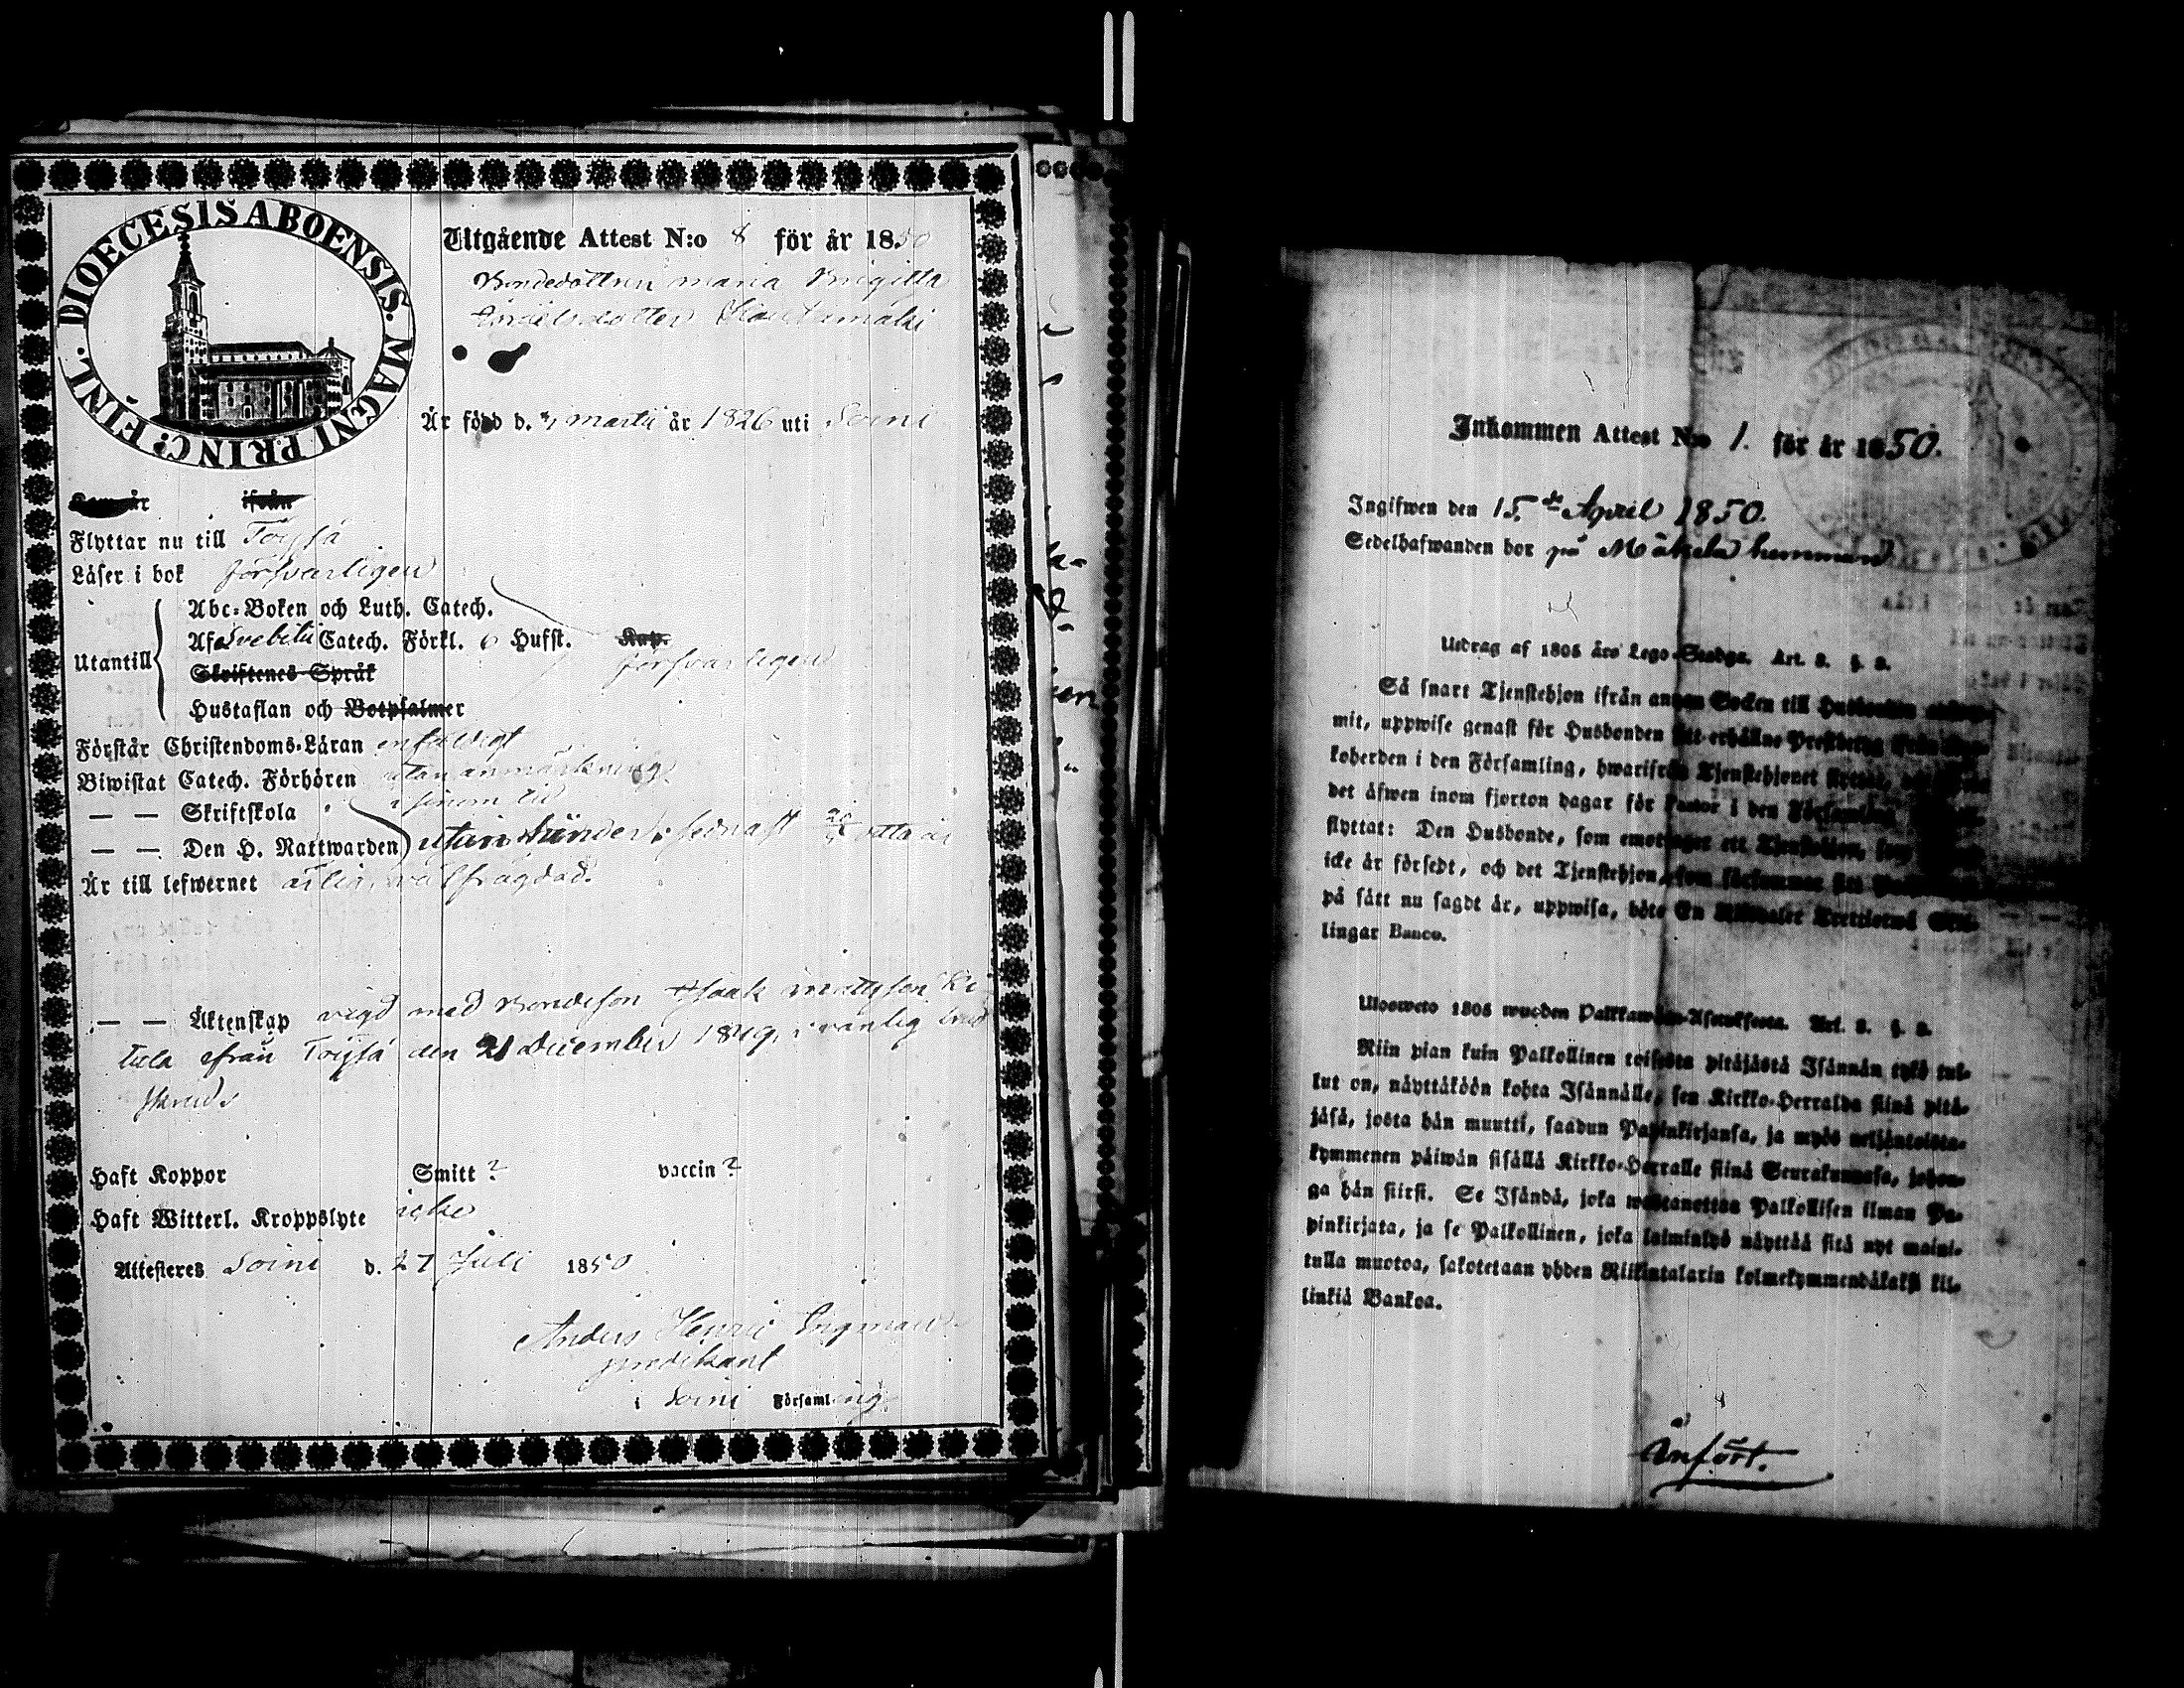 DIOECESIS ABOENSIS. MAGNI PRINC: FINL.
Utgående Attest N:o 8 för år 1850
Bondedottren Maria Brigitta
Är född d. Martii år 1826 uti Soini
ifrån
Flyttar nu till Töysä
Läser i bok försvarligen
Abc-Boken och Luth. Catech.
Utantill
Af Svebilii Catech. Förkl. 6 Hufst. Kap.
försvarligen
Skriftenes Språk
Hustaflan och Botpsalmer
Förstår Christendoms-Läran enfaldigt
Biwistat Catech. Förhören utan anmärkning
— — Skriftskola i sinom tid
— — Den H. Nattwarden utan hinder, sednast
Är till lefwernet ärlig, välfrägdad.
— — Äktenskap vigd med Bondeson Isaak Mattsson
ifrån Töysä den 21 December 1849, i vanlig brud
skrud.
Haft Koppor Smitt? vaccin?
Haft Witterl. Kroppslyte icke
Attesteras Soini d. 27 Juli 1850
Anders Henric Ingman
predikant
i Soini Församling
Inkommen Attest N:o 1. för år 1850.
Ingifwen den 15.de April 1850.
Sedelhafwanden bor på Mäkelä hemman
Utdrag af 1805 års Lego-Stadga. Art. 3. §. 2.
Så snart Tjenstehjon ifrån annan Socken till Husbonden
mit, uppwise genast för Husbonden sitt erhållne Prestbetyg från
koherden i den Församling, hwarifrån Tjenstehjonet flyttat,
det äfwen inom fjorton dagar för Pastor i den Församling
flyttat: Den Husbonde, som emottaget ett Tjenstehjon, som
icke är försedt, och det Tjenstehjon, som försummar sitt
på sätt nu sagdt är, uppwisa, böte En Riksdaler Trettiotwå Skil-
lingar Banco.
Ulosweto 1805 wuoden Palkkawäen-Asetuksesta. Art. 3. §. 2.
Niin pian kuin Palkollinen toisesta pitäjästä Isännän tykö tul-
lut on, näyttäköön kohta Isännälle, sen Kirkko-Herralda siinä pitä-
jäsä, josta hän muutti, saadun Papinkirjansa, ja myös neljäntoista-
kymmenen päiwän sisällä Kirkko-Herralle siinä Seurakunnasa, johon-
ga hän siirsi. Se Isändä, joka wastanottaa Palkollisen ilman Pa-
pinkirjata, ja se Palkollinen, joka laiminlyö näyttää sitä nyt maini-
tulla muotoa, sakotetaan yhden Riikintalarin kolmekymmendäkaksi kil-
linkiä Bankoa.
Anfört.